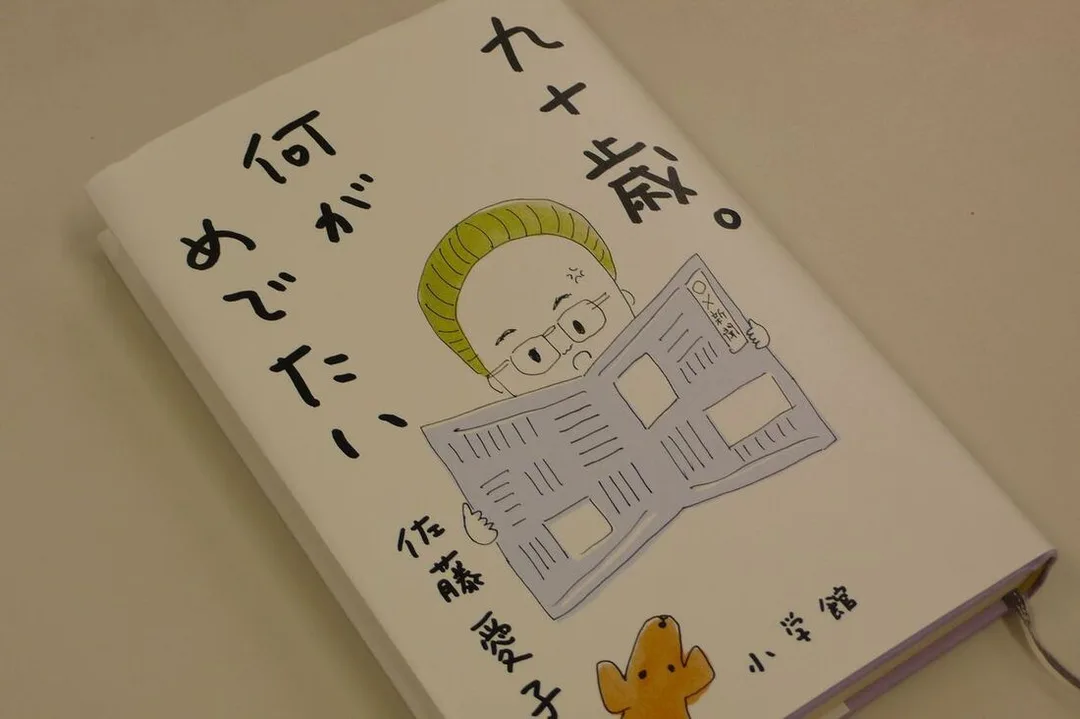 九十歳。
何が
めでたい
佐藤愛子
小学館
○×新聞